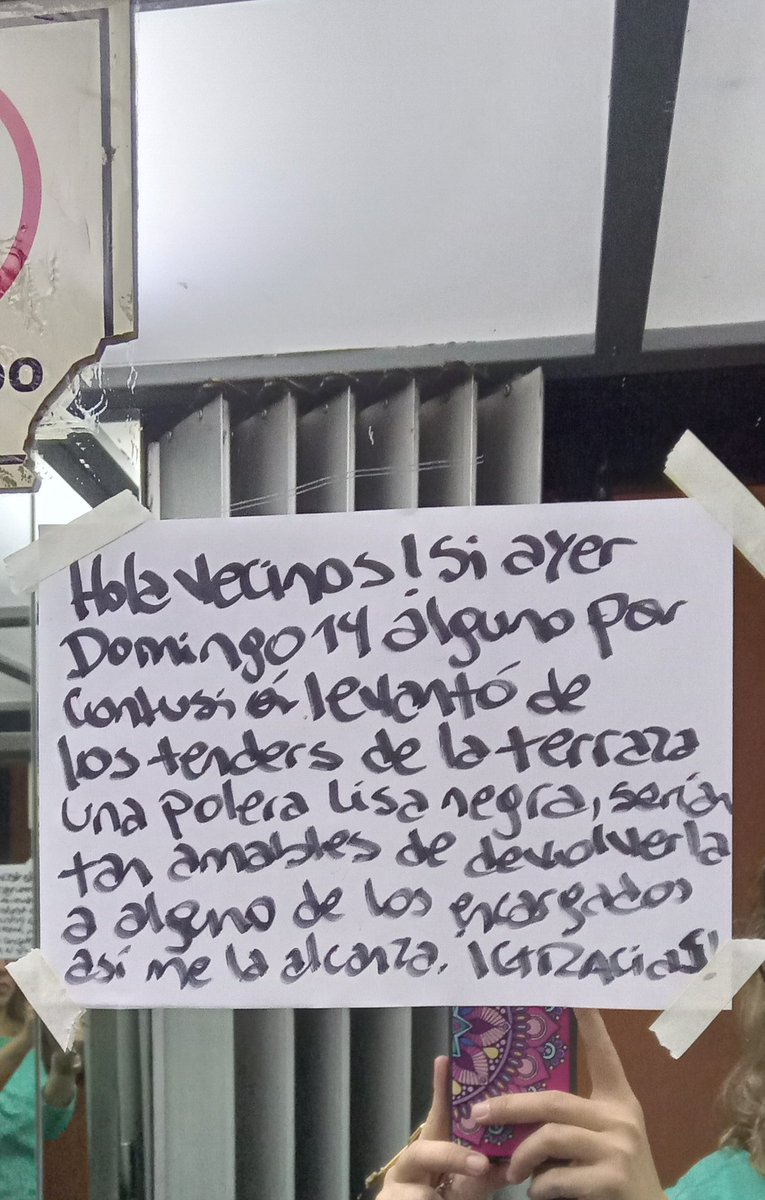 DO
Hola vecinos! Si ayer
Domingo 14 alguno por
confusión levantó de
los tenders de la terraza
una polera lisa negra, serían
tan amables de devolverla
a algeno de los encargados
así me la alcanza. ¡GRACIAS!